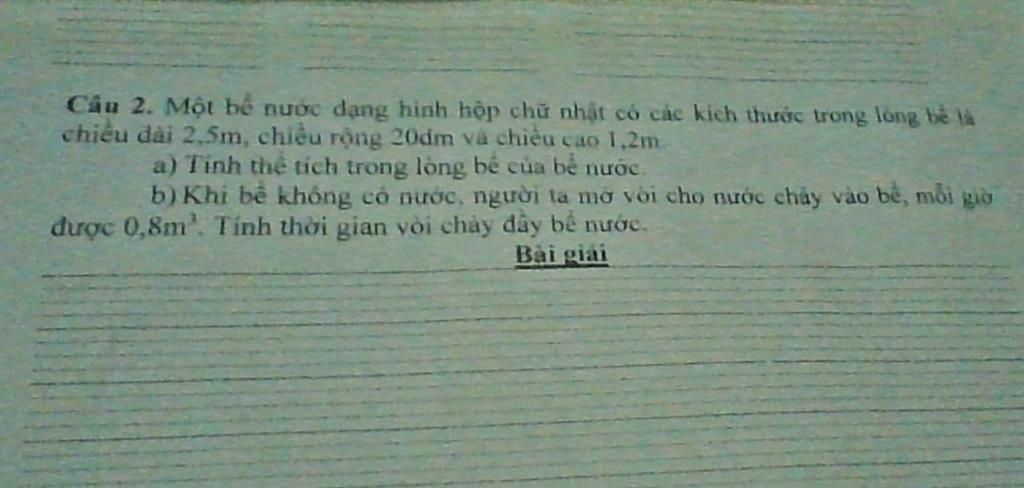 Câu 2. Một bể nước dạng hình hộp chữ nhật có các kích thước trong lòng bể là
chiều dài 2,5m, chiều rộng 20dm và chiều cao 1,2m.
a) Tính thể tích trong lòng bể của bể nước.
b) Khi bể không có nước, người ta mở vòi cho nước chảy vào bể, mỗi giờ
được 0,8m³. Tính thời gian vòi chảy đầy bể nước.
Bài giải